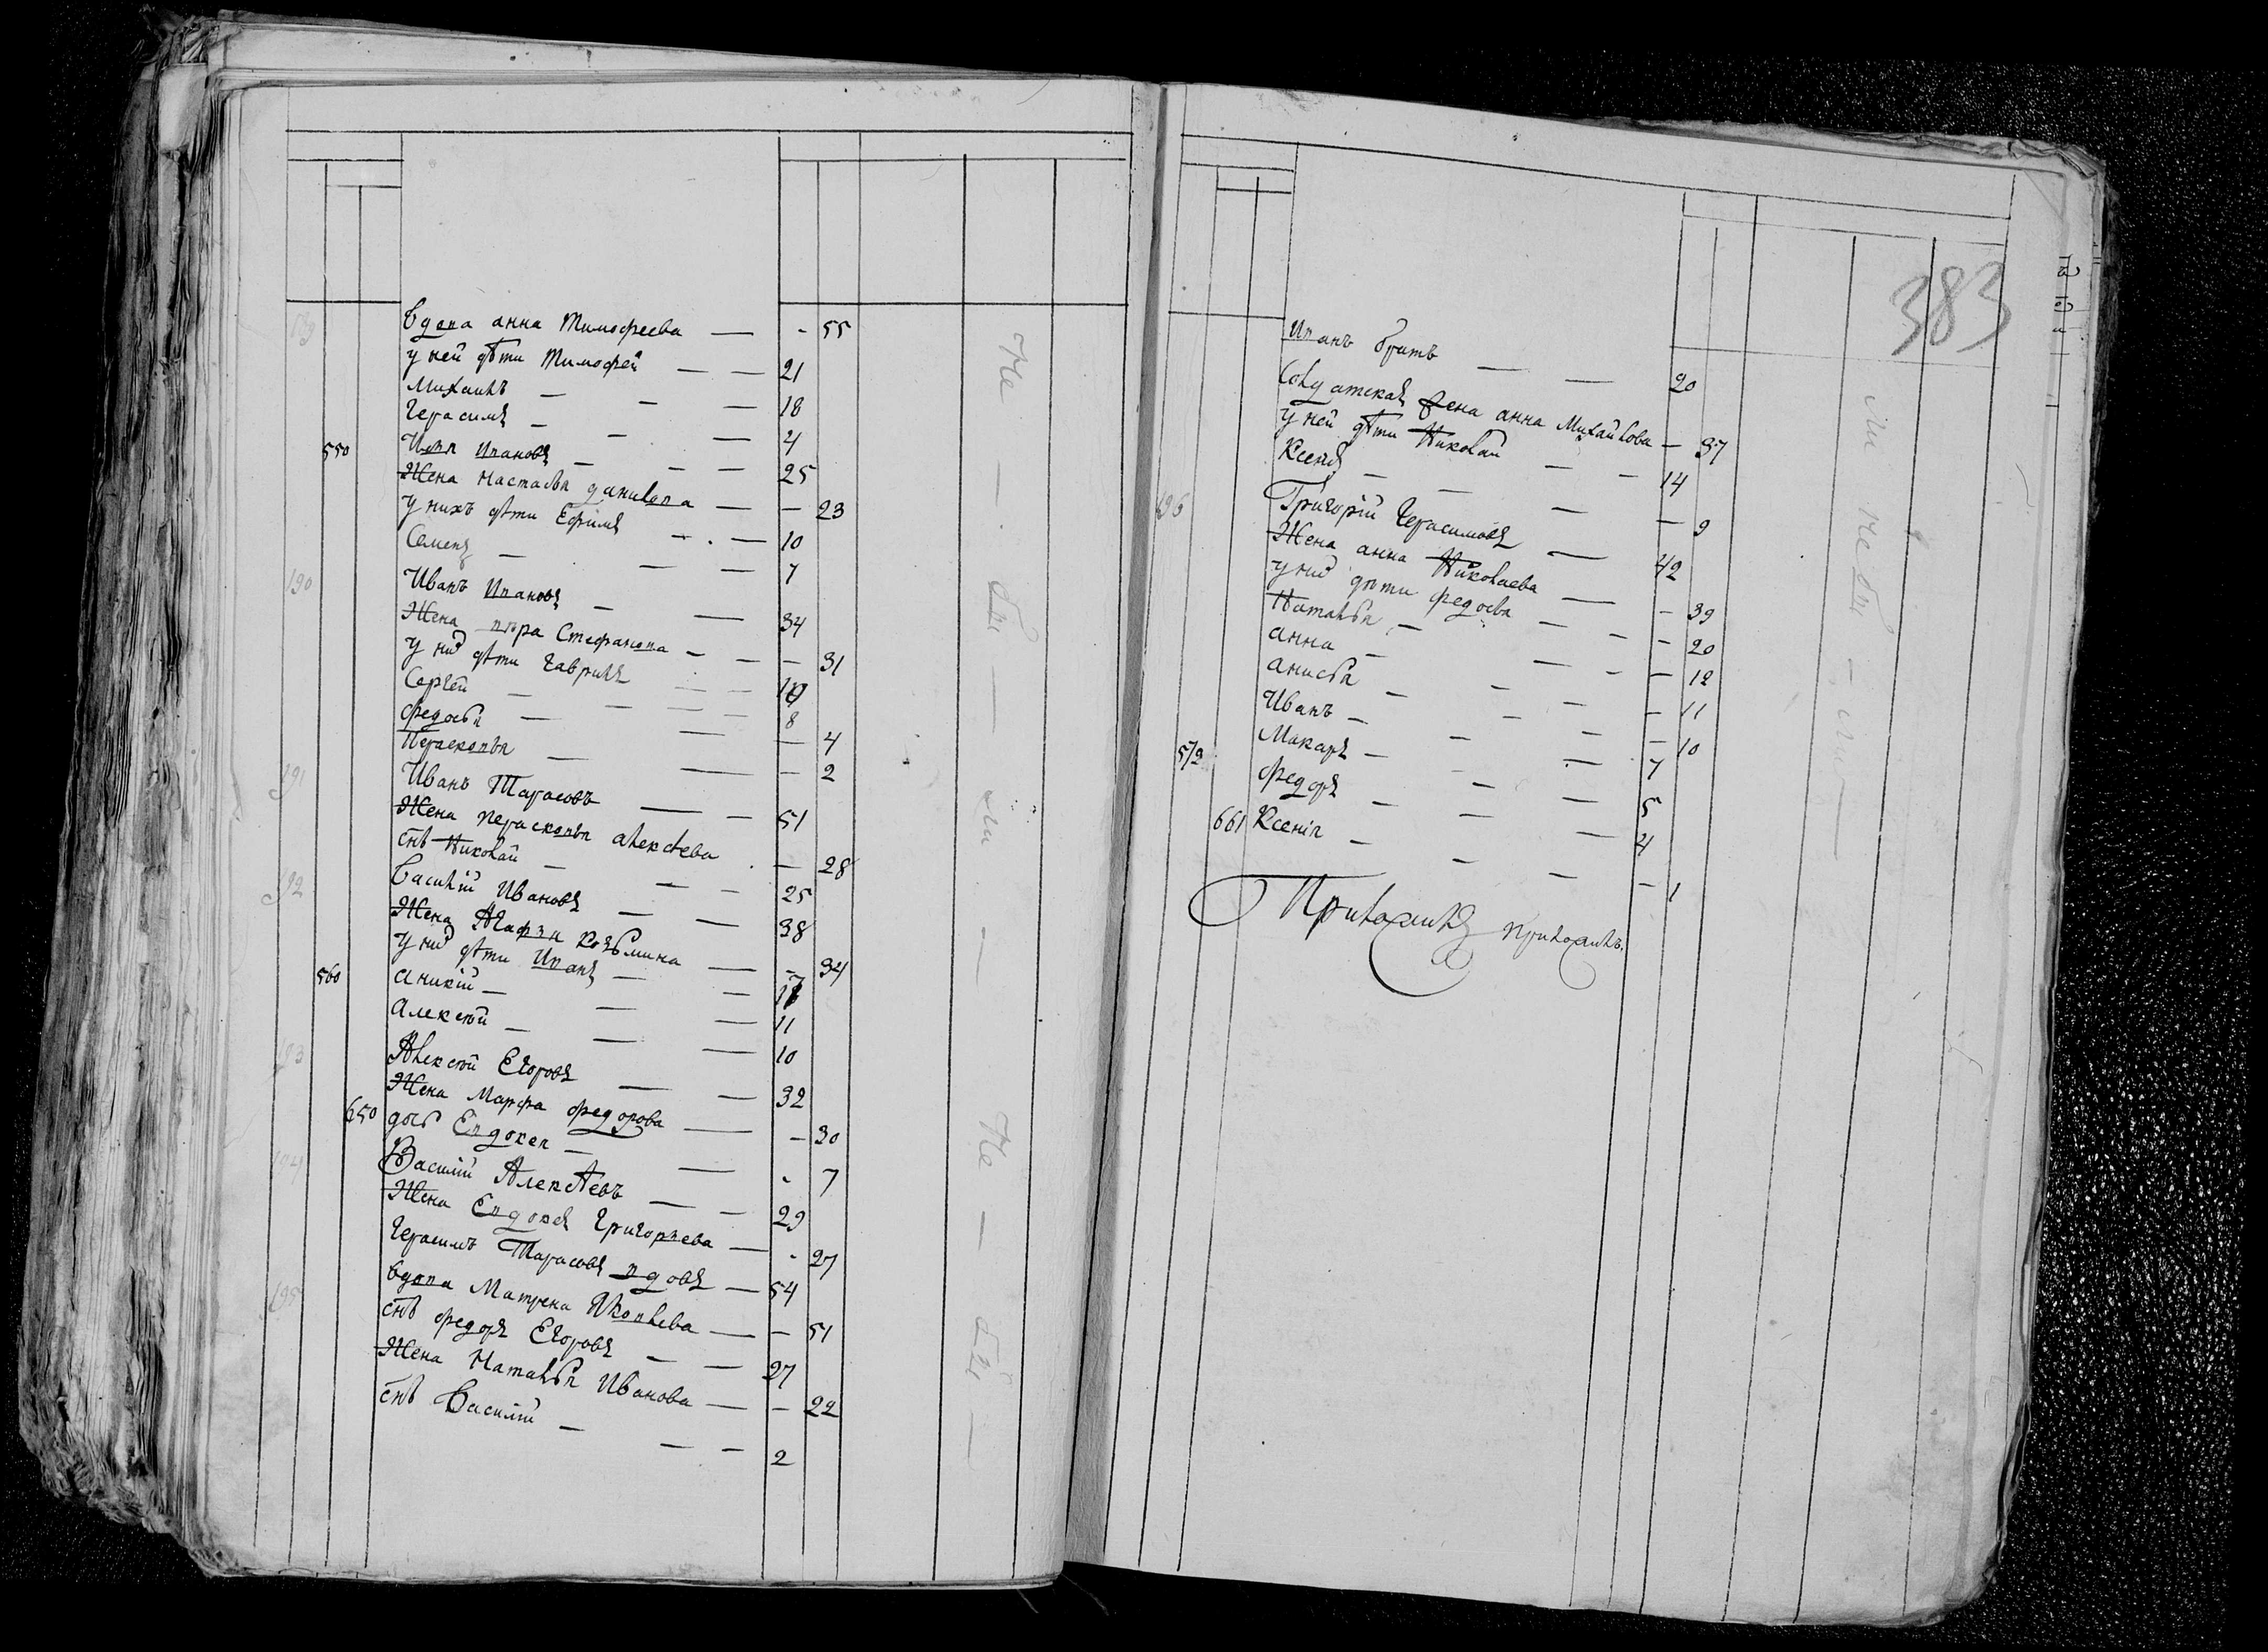 189 Вдова анна Тимофеева — - 55
у ней дѣти Тимофей — — 21
Михаилъ — — — 18
Герасимъ — — — 4
550 Иванъ Ивановъ — — — 25
Жена Настасья данилова — — 23
у нихъ дѣти Ефимъ — — 10
Семенъ — — — 7
190 Иванъ Ивановъ — — 34
Жена Стефанова — — — 31
у них дѣти Гаврилъ — — 10
Сергей — — — — 8
федосья — — — 4
Парасковья — — — 2
191 Иванъ Тарасовъ — — 51
Жена Парасковья алексѣева — 28
снъ Николай — — — 25
192 Василій Ивановъ — — 38
Жена Агафья Козьмина — — 34
у них дѣти Иванъ — — 17
560 аникій — — — 11
алексѣй — — — 10
193 Алексѣй Егоровъ — — 32
Жена Марфа федорова — — 30
650 дочь Евдокея — — - 7
194 Василій Алексѣевъ — — 29
Жена Евдокея Григорьева — - 27
Герасимъ Тарасовъ вдовъ — 54
195 Вдова Матрена Яковлева — — 51
снъ федоръ Егоровъ — — 27
Жена Наталья Иванова — — 22
снъ Василій — — — 2
Не — бы — ли — Не — бы —
383
Иванъ братъ — — 20
Солдатская жена анна Михайлова — 37
у ней дѣти Николай — — 14
Ксенія — — — — 9
196 Григорій Герасимовъ — 42
Жена анна Николаева — — 39
у них дѣти федосья — — — 20
Наталья — — — — 12
анна — — — — 11
анисья — — — — 10
Иванъ — — — 7
572 Макаръ — — — 5
федоръ — — — 4
661 Ксенія — — — — 1
ли не бы — ли —